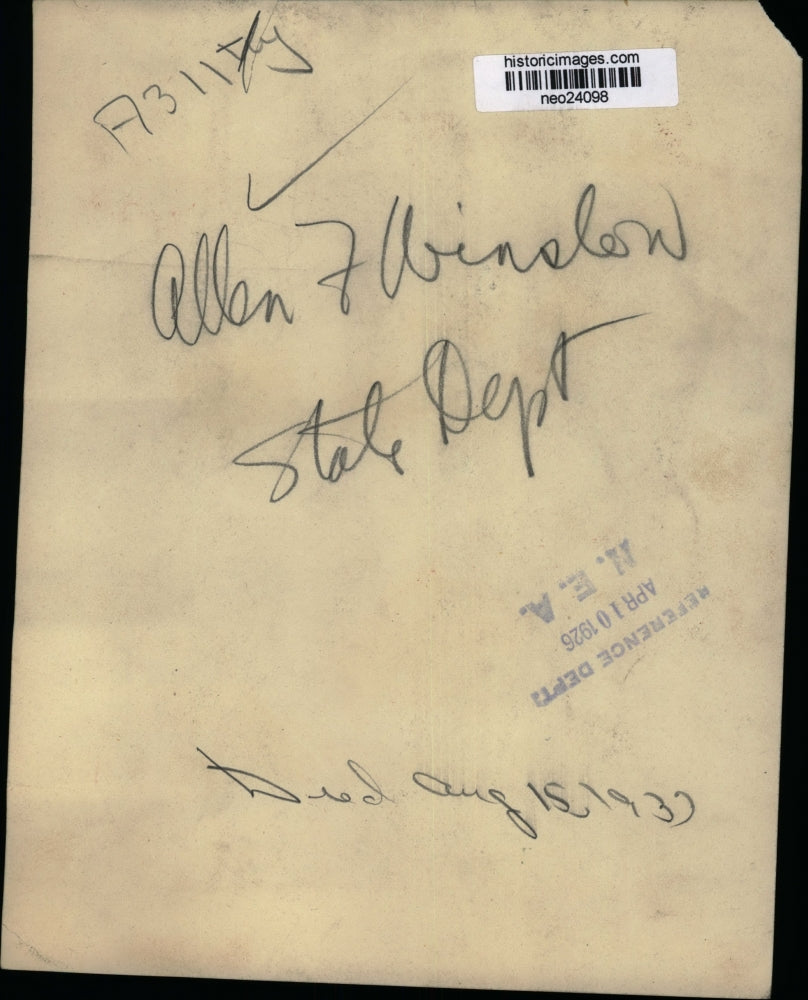 historicimages.com
neo24098
A311
Allen F Winslow
State Dept
REFERENCE DEPT.
APR 10 1926
N. E. A.
Died Aug 15, 1933